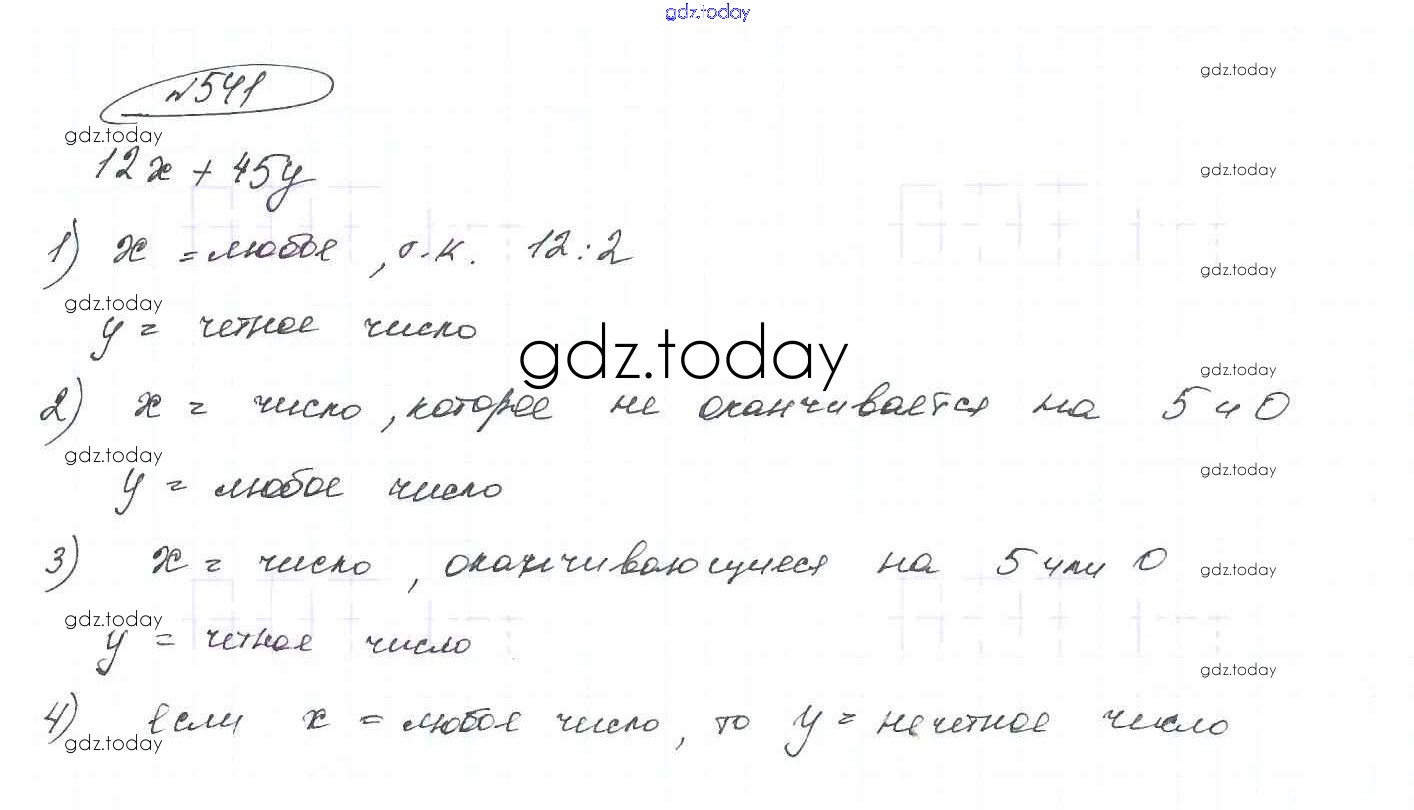 gdz.today
№541
gdz.today
gdz.today
12x + 45y
gdz.today
1) x = любое, т.к. 12:2
gdz.today
gdz.today
y = четное число
gdz.today
gdz.today
2) x = число, которое не оканчивается на 5 и 0
gdz.today
gdz.today
y = любое число
3) x = число, оканчивающиеся на 5 или 0
gdz.today
gdz.today
y = четное число
gdz.today
4) если x = любое число, то y = нечетное число
gdz.today